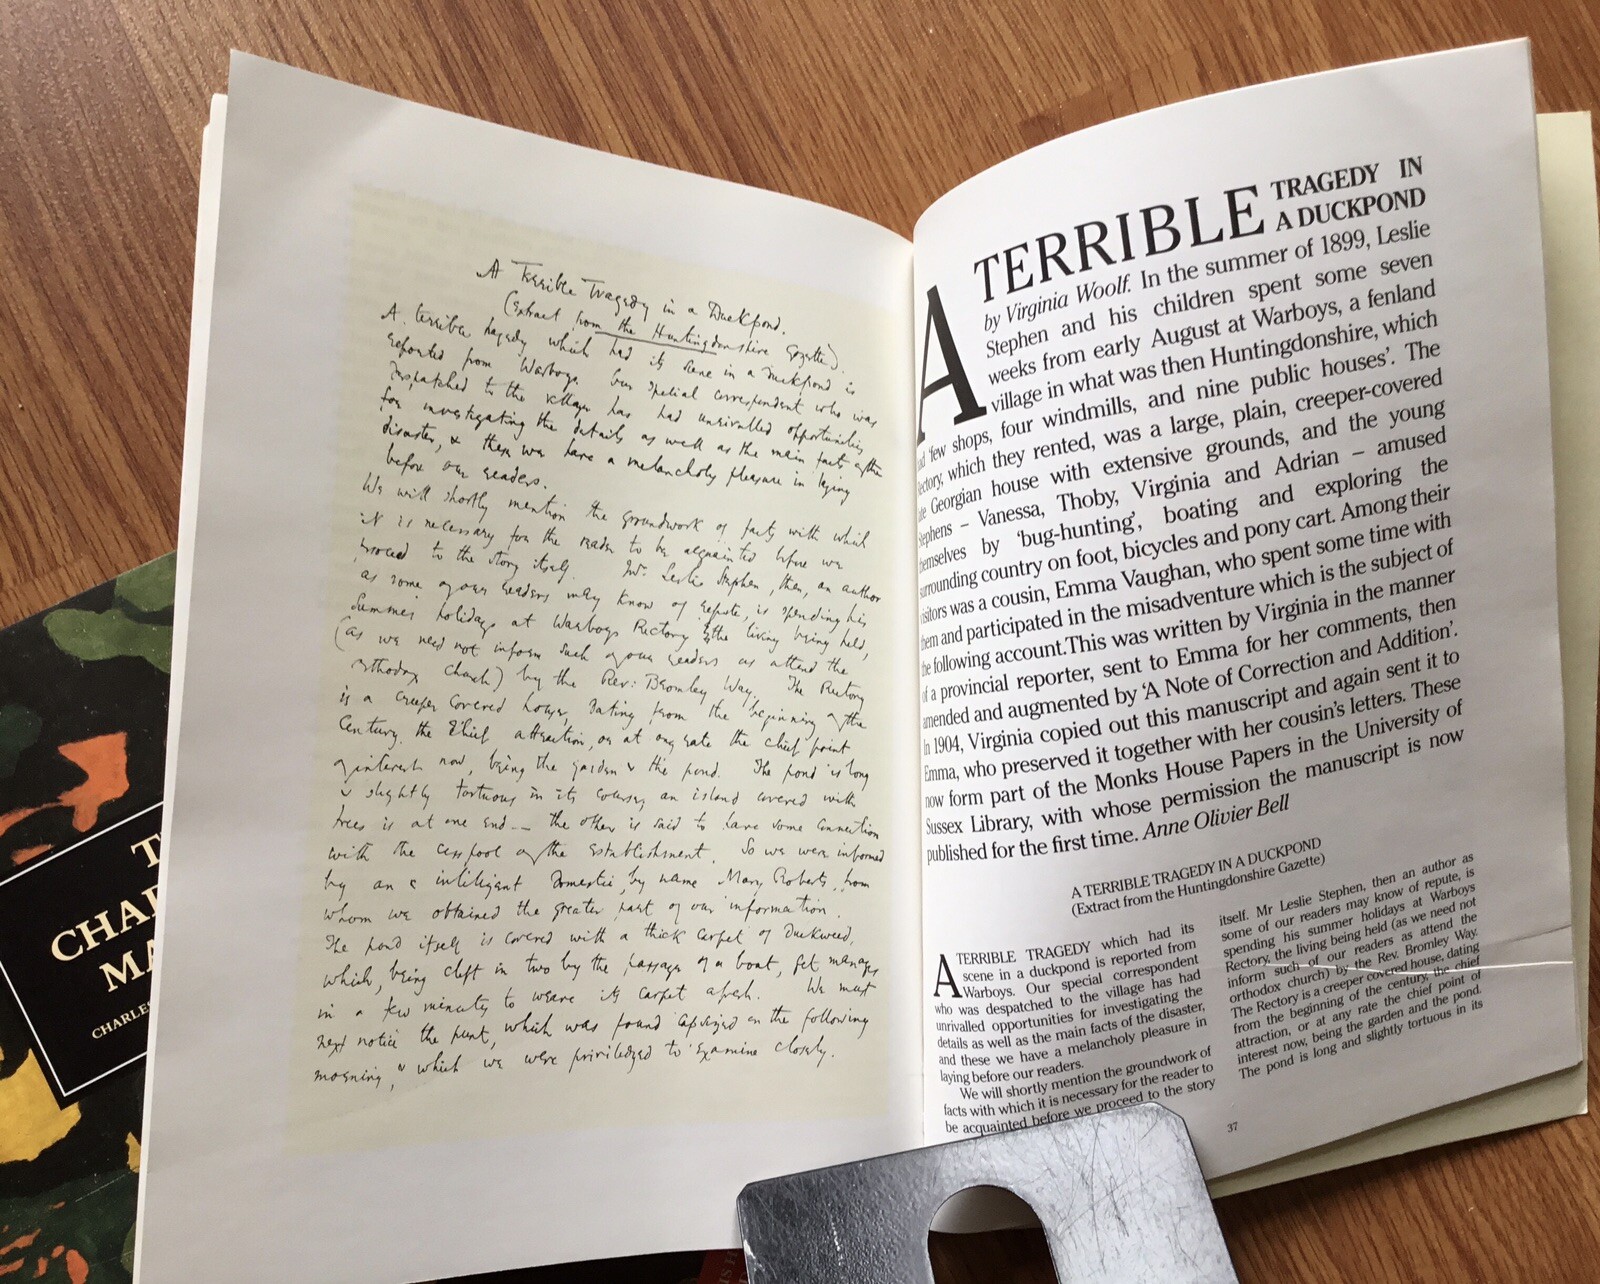 A Terrible Tragedy in a Duckpond.
(Extract from the Huntingdonshire Gazette).
A terrible tragedy which had its scene in a duckpond is
reported from Warboys. Our special correspondent who was
despatched to the village has had unrivalled opportunities
for investigating the details as well as the main facts of the
disaster, & these we have a melancholy pleasure in laying
before our readers.
We will shortly mention the groundwork of facts with which
it is necessary for the reader to be acquainted before we
proceed to the story itself. Mr. Leslie Stephen, then, an author
as some of our readers may know of repute, is spending his
summer holidays at Warboys Rectory, the living being held,
(as we need not inform such of our readers as attend the
orthodox church) by the Rev: Bromley Way. The Rectory
is a creeper covered house, dating from the beginning of the
Century, the chief attraction, or at any rate the chief point
of interest now, being the garden & the pond. The pond is long
& slightly tortuous in its course, an island covered with
trees is at one end — the other is said to have some connection
with the cesspool of the establishment. So we were informed
by an intelligent domestic, by name Mary Roberts, from
whom we obtained the greater part of our information.
The pond itself is covered with a thick carpet of Duckweed,
which, being cleft in two by the passage of a boat, yet manages
in a few minutes to weave its carpet afresh. We must
next notice the punt, which was found capsized on the following
morning, & which we were priviledged to examine closely.
A TERRIBLE TRAGEDY IN
A DUCKPOND
by Virginia Woolf. In the summer of 1899, Leslie
Stephen and his children spent some seven
weeks from early August at Warboys, a fenland
village in what was then Huntingdonshire, which
had 'few shops, four windmills, and nine public houses'. The
Rectory, which they rented, was a large, plain, creeper-covered
late Georgian house with extensive grounds, and the young
Stephens – Vanessa, Thoby, Virginia and Adrian – amused
themselves by 'bug-hunting', boating and exploring the
surrounding country on foot, bicycles and pony cart. Among their
visitors was a cousin, Emma Vaughan, who spent some time with
them and participated in the misadventure which is the subject of
the following account.This was written by Virginia in the manner
of a provincial reporter, sent to Emma for her comments, then
amended and augmented by 'A Note of Correction and Addition'.
In 1904, Virginia copied out this manuscript and again sent it to
Emma, who preserved it together with her cousin's letters. These
now form part of the Monks House Papers in the University of
Sussex Library, with whose permission the manuscript is now
published for the first time. Anne Olivier Bell
A TERRIBLE TRAGEDY IN A DUCKPOND
(Extract from the Huntingdonshire Gazette)
A TERRIBLE TRAGEDY which had its
scene in a duckpond is reported from
Warboys. Our special correspondent
who was despatched to the village has had
unrivalled opportunities for investigating the
details as well as the main facts of the disaster,
and these we have a melancholy pleasure in
laying before our readers.
We will shortly mention the groundwork of
facts with which it is necessary for the reader to
be acquainted before we proceed to the story
itself. Mr Leslie Stephen, then an author as
some of our readers may know of repute, is
spending his summer holidays at Warboys
Rectory, the living being held (as we need not
inform such of our readers as attend the
orthodox church) by the Rev. Bromley Way.
The Rectory is a creeper covered house, dating
from the beginning of the century, the chief
attraction, or at any rate the chief point of
interest now, being the garden and the pond.
The pond is long and slightly tortuous in its
37
CHARLES